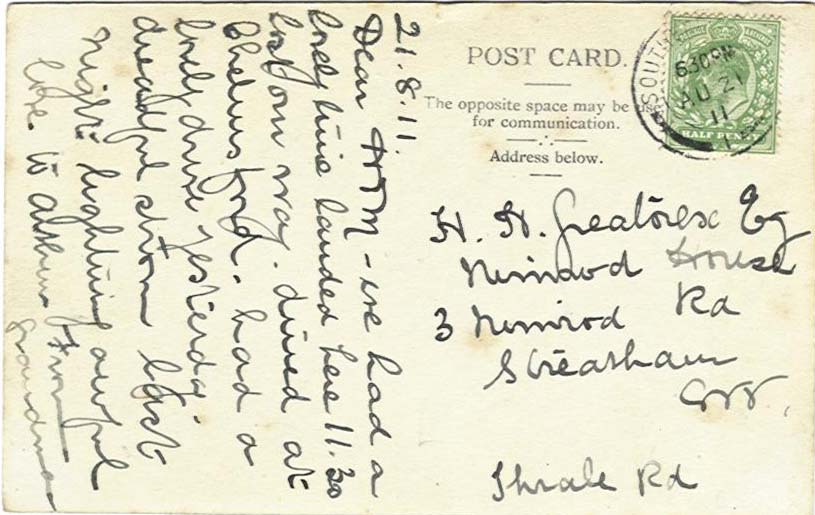 21.8.11.
Dear HTM - we had a
lovely time landed here 11.30
lost our way. dined at
Chelmsford. had a
lovely drive yesterday.
dreadful storm last
night lightning awful
love to all from
Grandma
POST CARD.
The opposite space may be used
for communication.
Address below.
SOUTH
630PM
AU 21
11
HALF PENNY
H. H. Greatorex Esq
Nimrod House
3 Nimrod Rd
Streatham
SW.
Thrale Rd